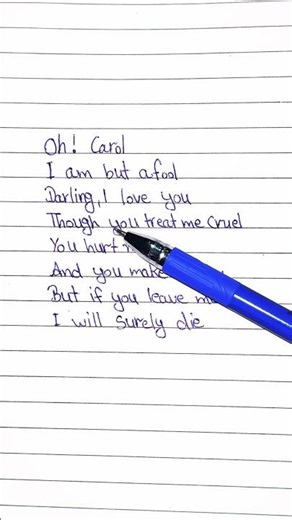 Oh! Carol
I am but a fool
Darling, I love you
Though you treat me cruel
You hurt
And you make
But if you leave
I will surely die